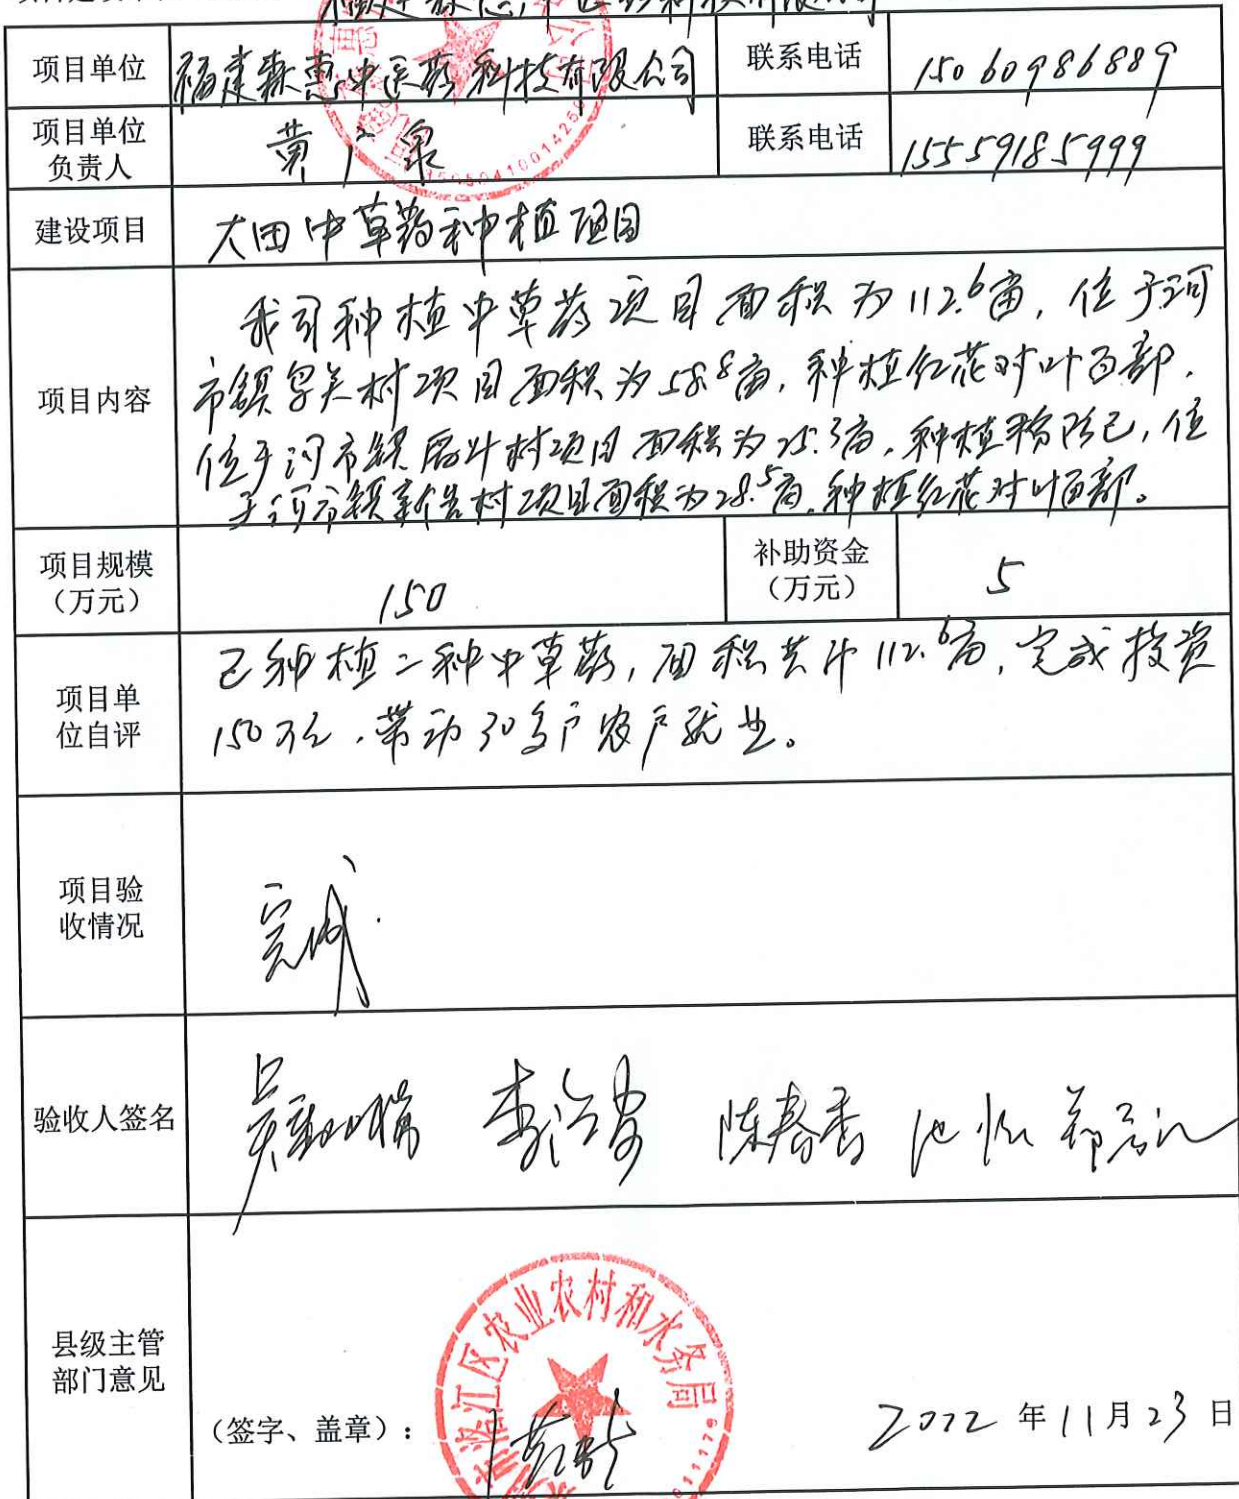 项目单位 福建森惠中医药科技有限公司 联系电话 15060986889
项目单位
负责人 黄广泉 联系电话 15559185999
建设项目 大田中草药种植项目
项目内容
我司种植中草药项目面积为112.6亩，位于河
市镇 村项目面积为58.8亩，种植红花对叶百部，
位于河市镇厝斗村项目面积为25.3亩，种植粉防己，位
于河市镇新告村项目面积为28.5亩，种植红花对叶百部。
项目规模
（万元） 150
补助资金
（万元） 5
项目单
位自评
已种植二种中草药，面积共计112.6亩，完成投资
150万元，带动30多户农户就业。
项目验
收情况
完成.
验收人签名 陈春香
县级主管
部门意见
洛江区农业农村和水务局
（签字、盖章）：
2022年11月23日